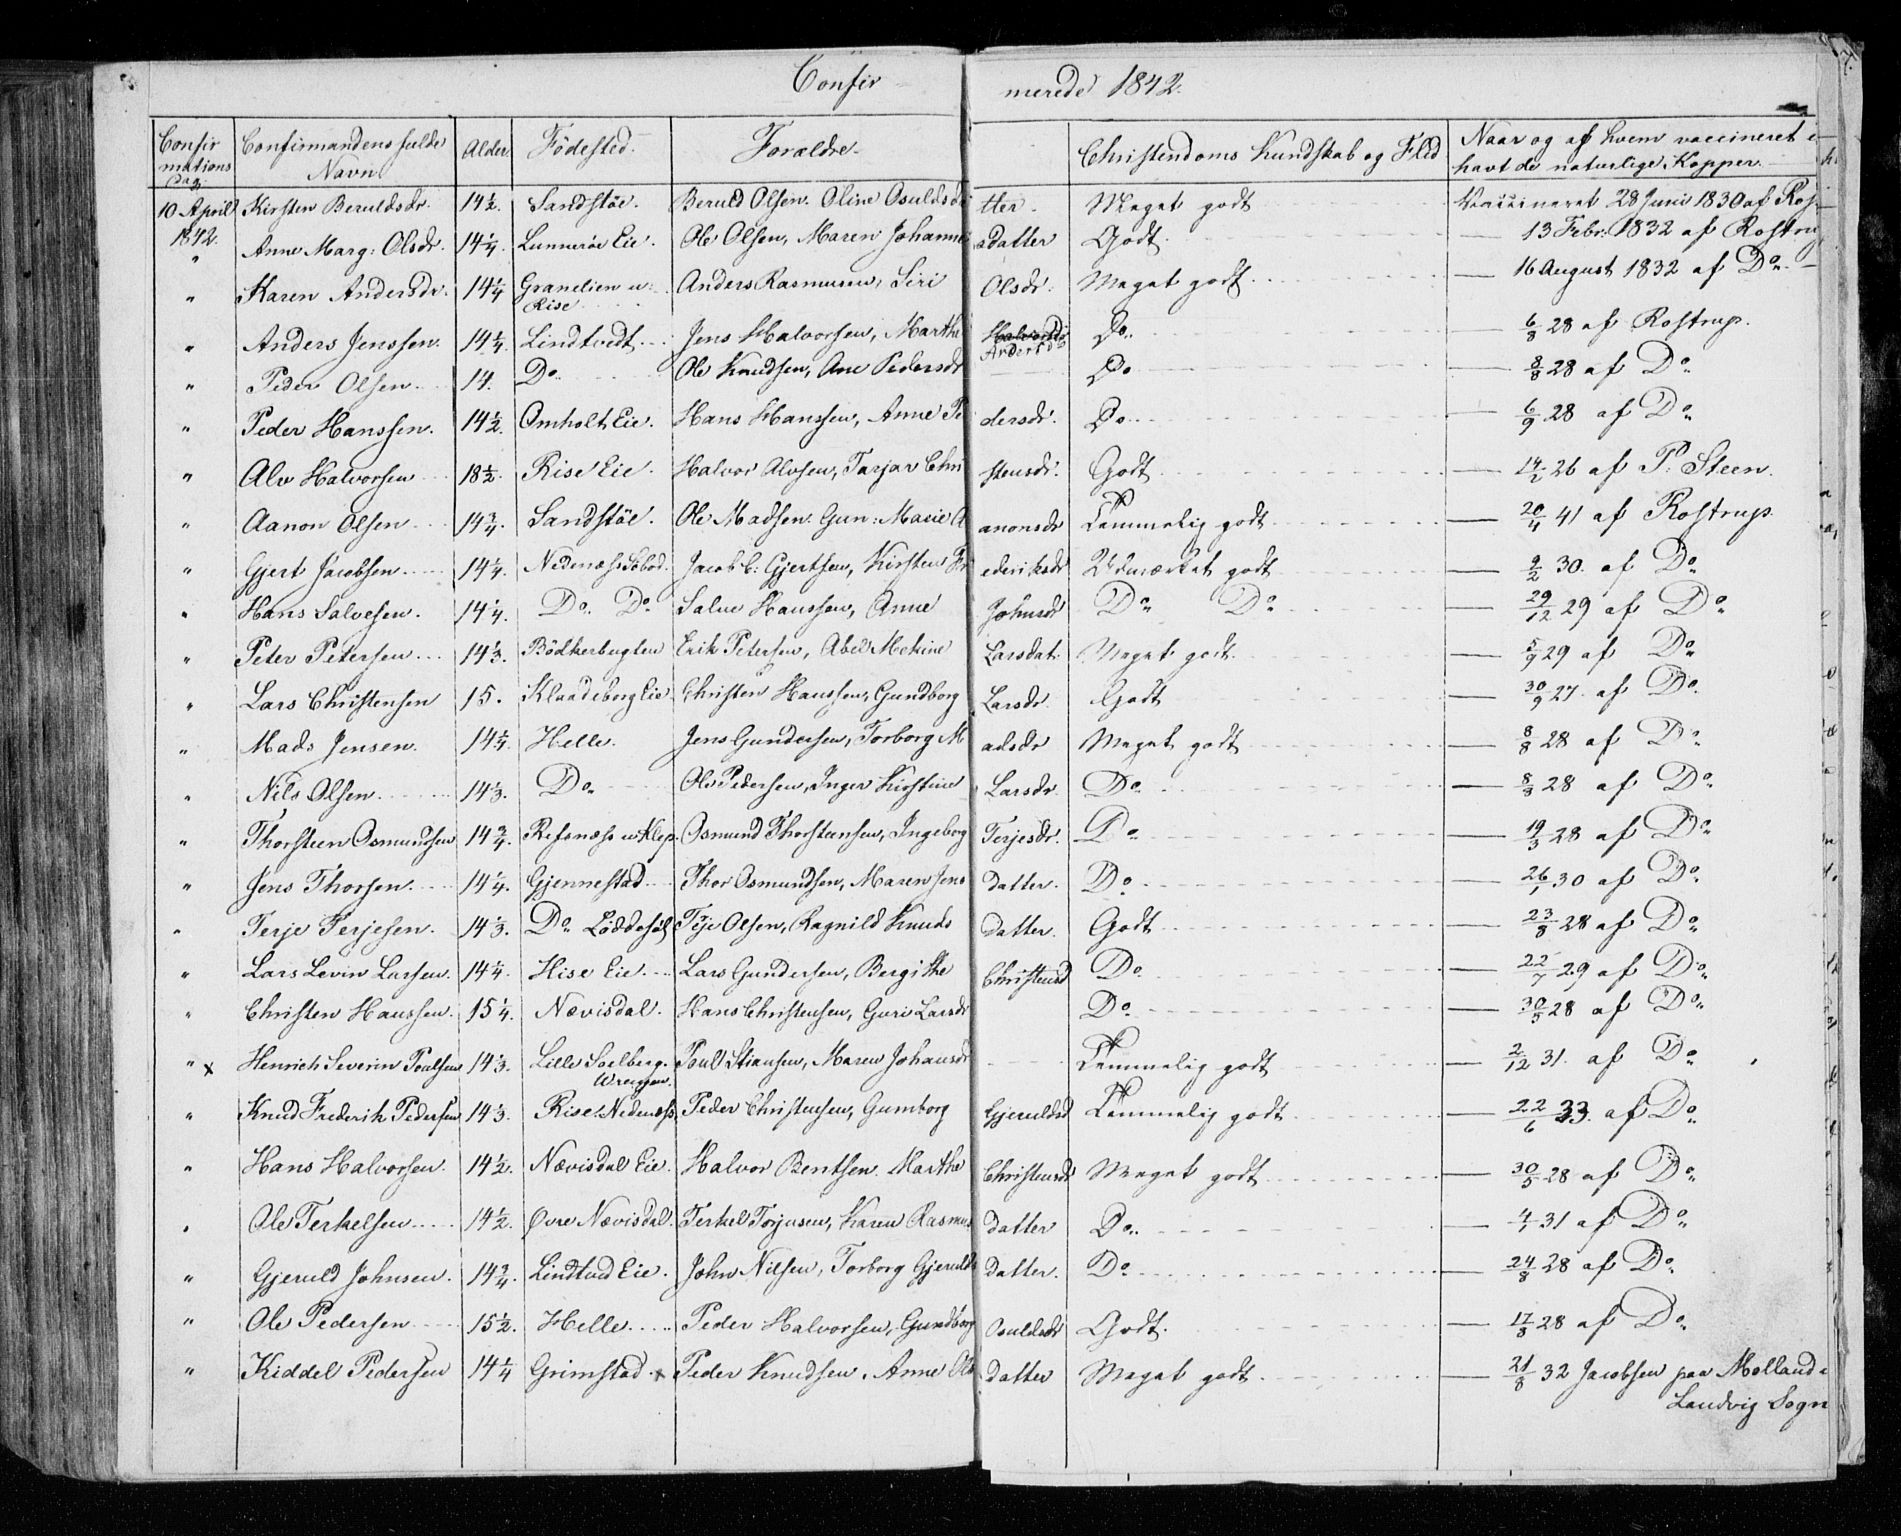 Confirmerede 1842.
Confirmations Dag. Confirmandens fulde Navn Alder. Födested. Forældre. Christendoms Kundskab og Flid Naar og af hvem vaccineret havt de naturlige Kopper.
10 April 1842. Kirsten Beruldsdr. 14½. Sandstöe. Beruld Olsen. Oline Osuldsdatter. Meget godt Vaccineret 28 Juni 1830 af Ros
" Anne Marg: Olsdr. 14¼. Lunneröe Eie. Ole Olsen, Maren Johannesdatter Godt. — 13 Febr. 1832 af Rostru
" Karen Andersdr. 14¼ Grandien u: Rise Anders Rasmusen, Siri Olsdr. Meget godt. — 16 August 1832 af Do.
" Anders Jenssen. 14¼. Lindtvedt Jens Halvorsen, Marthe Andersd Do. — 6/8 28 af Rostrup.
" Peder Olsen 14. Do Ole Knudsen, Ane Pedersdr Do — 8/8 28 af Do
" Peder Hanssen. 14½. Omholt Eie. Hans Hanssen, Anne Pedersdr. Do — 6/9 28 af Do
" Alv Halvorsen 18½. Rise Eie. Halvor Alvsen, Tarjar Christensdr. Godt — 14/2 26 af P. Steen.
" Aanon Olsen 14¾. Sandstöe. Ole Madsen. Gun: Marie Aanonsdr Temmelig godt — 20/4 41 af Rostrup
" Gjert Jacobsen 14¼. Nedenæs Sobod. Jacob C: Gjertsen, Kirsten Frederiksdr Udmærket godt — 9/2 30. af Do
" Hans Salvesen. 14¼. Do. Do Salve Hanssen, Anne Johnsdr Do Do — 29/12 29 af Do
" Peter Petersen 14⅓. Bödkerbugten Erik Petersen, Abel Mekine Larsdat. Meget godt. — 5/9 29 af Do
" Lars Christensen 15. Klaadeberg Eie Christen Hanssen, Gundborg Larsdr. Godt — 30/9 27. af Do.
" Mads Jensen. 14¼. Helle. Jens Gundersen, Torborg Madsdr Meget godt — 8/8 28 af Do
" Nils Olsen 14⅓. Do Ole Pedersen, Inger Kirstine Larsdr. Do — 8/8 28 af Do
" Thorsteen Osmundsen 14¾. Refsnæs u Klep. Osmund Thorsteensen, Ingeborg Terjesdr. Do — 19/3 28 af Do
" Jens Thorsen 14¼. Gjennestad Thor Osmundsen, Maren Jensdatter. Do — 26/1 30 af Do
" Terje Terjesen. 14⅓. Do Löddesöl Terje Olsen, Ragnild Knudsdatter. Godt — 23/8 28 af Do
" Lars Levin Larsen. 14¼. Hise Eie Lars Gundersen, Bergithe Christensd Do — 22/7 29 af Do
" Christen Hanssen. 15¼. Nævisdal. Hans Christensen, Guri Larsdr Do — 30/5 28 af Do
" x Henrich Severin Poulsen 14⅓. Lille Soelberg. Poul Stiansen, Maren Johansdr Temmelig godt — 2/12 31. af Do
" Knud Frederik Pedersen 14⅓. Rise. Nedenæs. Peder Christensen, Gumborg Gjeruldsd Temmelig godt — 22/6 33. af Do
" Hans Halvorsen. 14½. Nævisdal Eie. Halvor Bentsen. Marthe Christensdr Meget godt — 30/5 28 af Do
" Ole Terkelsen 14½. Øvre Nævisdal. Terkel Torjusen, Karen Rasmusdatter Do — 4/1 31 af Do
" Gjeruld Johnsen. 14¾. Lindtved Eie. John Nilsen, Torborg Gjeruldsdatter. Do — 24/8 28 af Do
" Ole Pedersen 15½. Helle Peder Halvorsen, Gundborg Osuldsdr Godt. — 17/8 28 af Do
" Kiddel Pedersen 14¼ Grimstad. x Peder Knudsen. Anne Olsdatter Meget godt — 21/8 32 Jacobsen paa Molland
Landvig Sogn